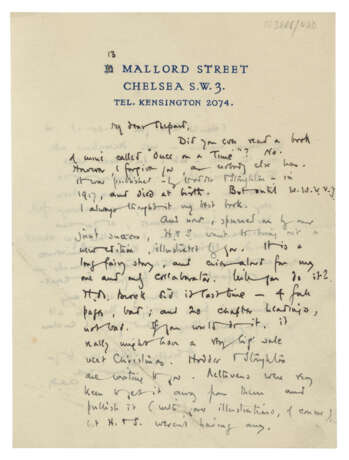 13
MALLORD STREET
CHELSEA S.W.3.
TEL. KENSINGTON 2074.
My dear Shepard,
Did you ever read a book
of mine called "Once on a Time"? No.
However I forgive you, as nobody else has.
It was published by Hodder & Stoughton in
1917, and died at birth. But until W.W.V.Y.
I always thought it my best book.
And now, spurred on by our
joint success, H & S want to bring out a
new edition, illustrated by you. It is a
long fairy story, and
one and my collaborator. Will you do it?
H.M. Brock did it last time – 4 full
pages, bad; and 20 chapter headings,
not bad. If you would do it, it
really might have a very big sale
next Christmas. Hodder & Stoughton
are writing to you. Methuens were very
keen to get it away from them and
publish it (with your illustrations, of course)
but H & S. weren't having any.